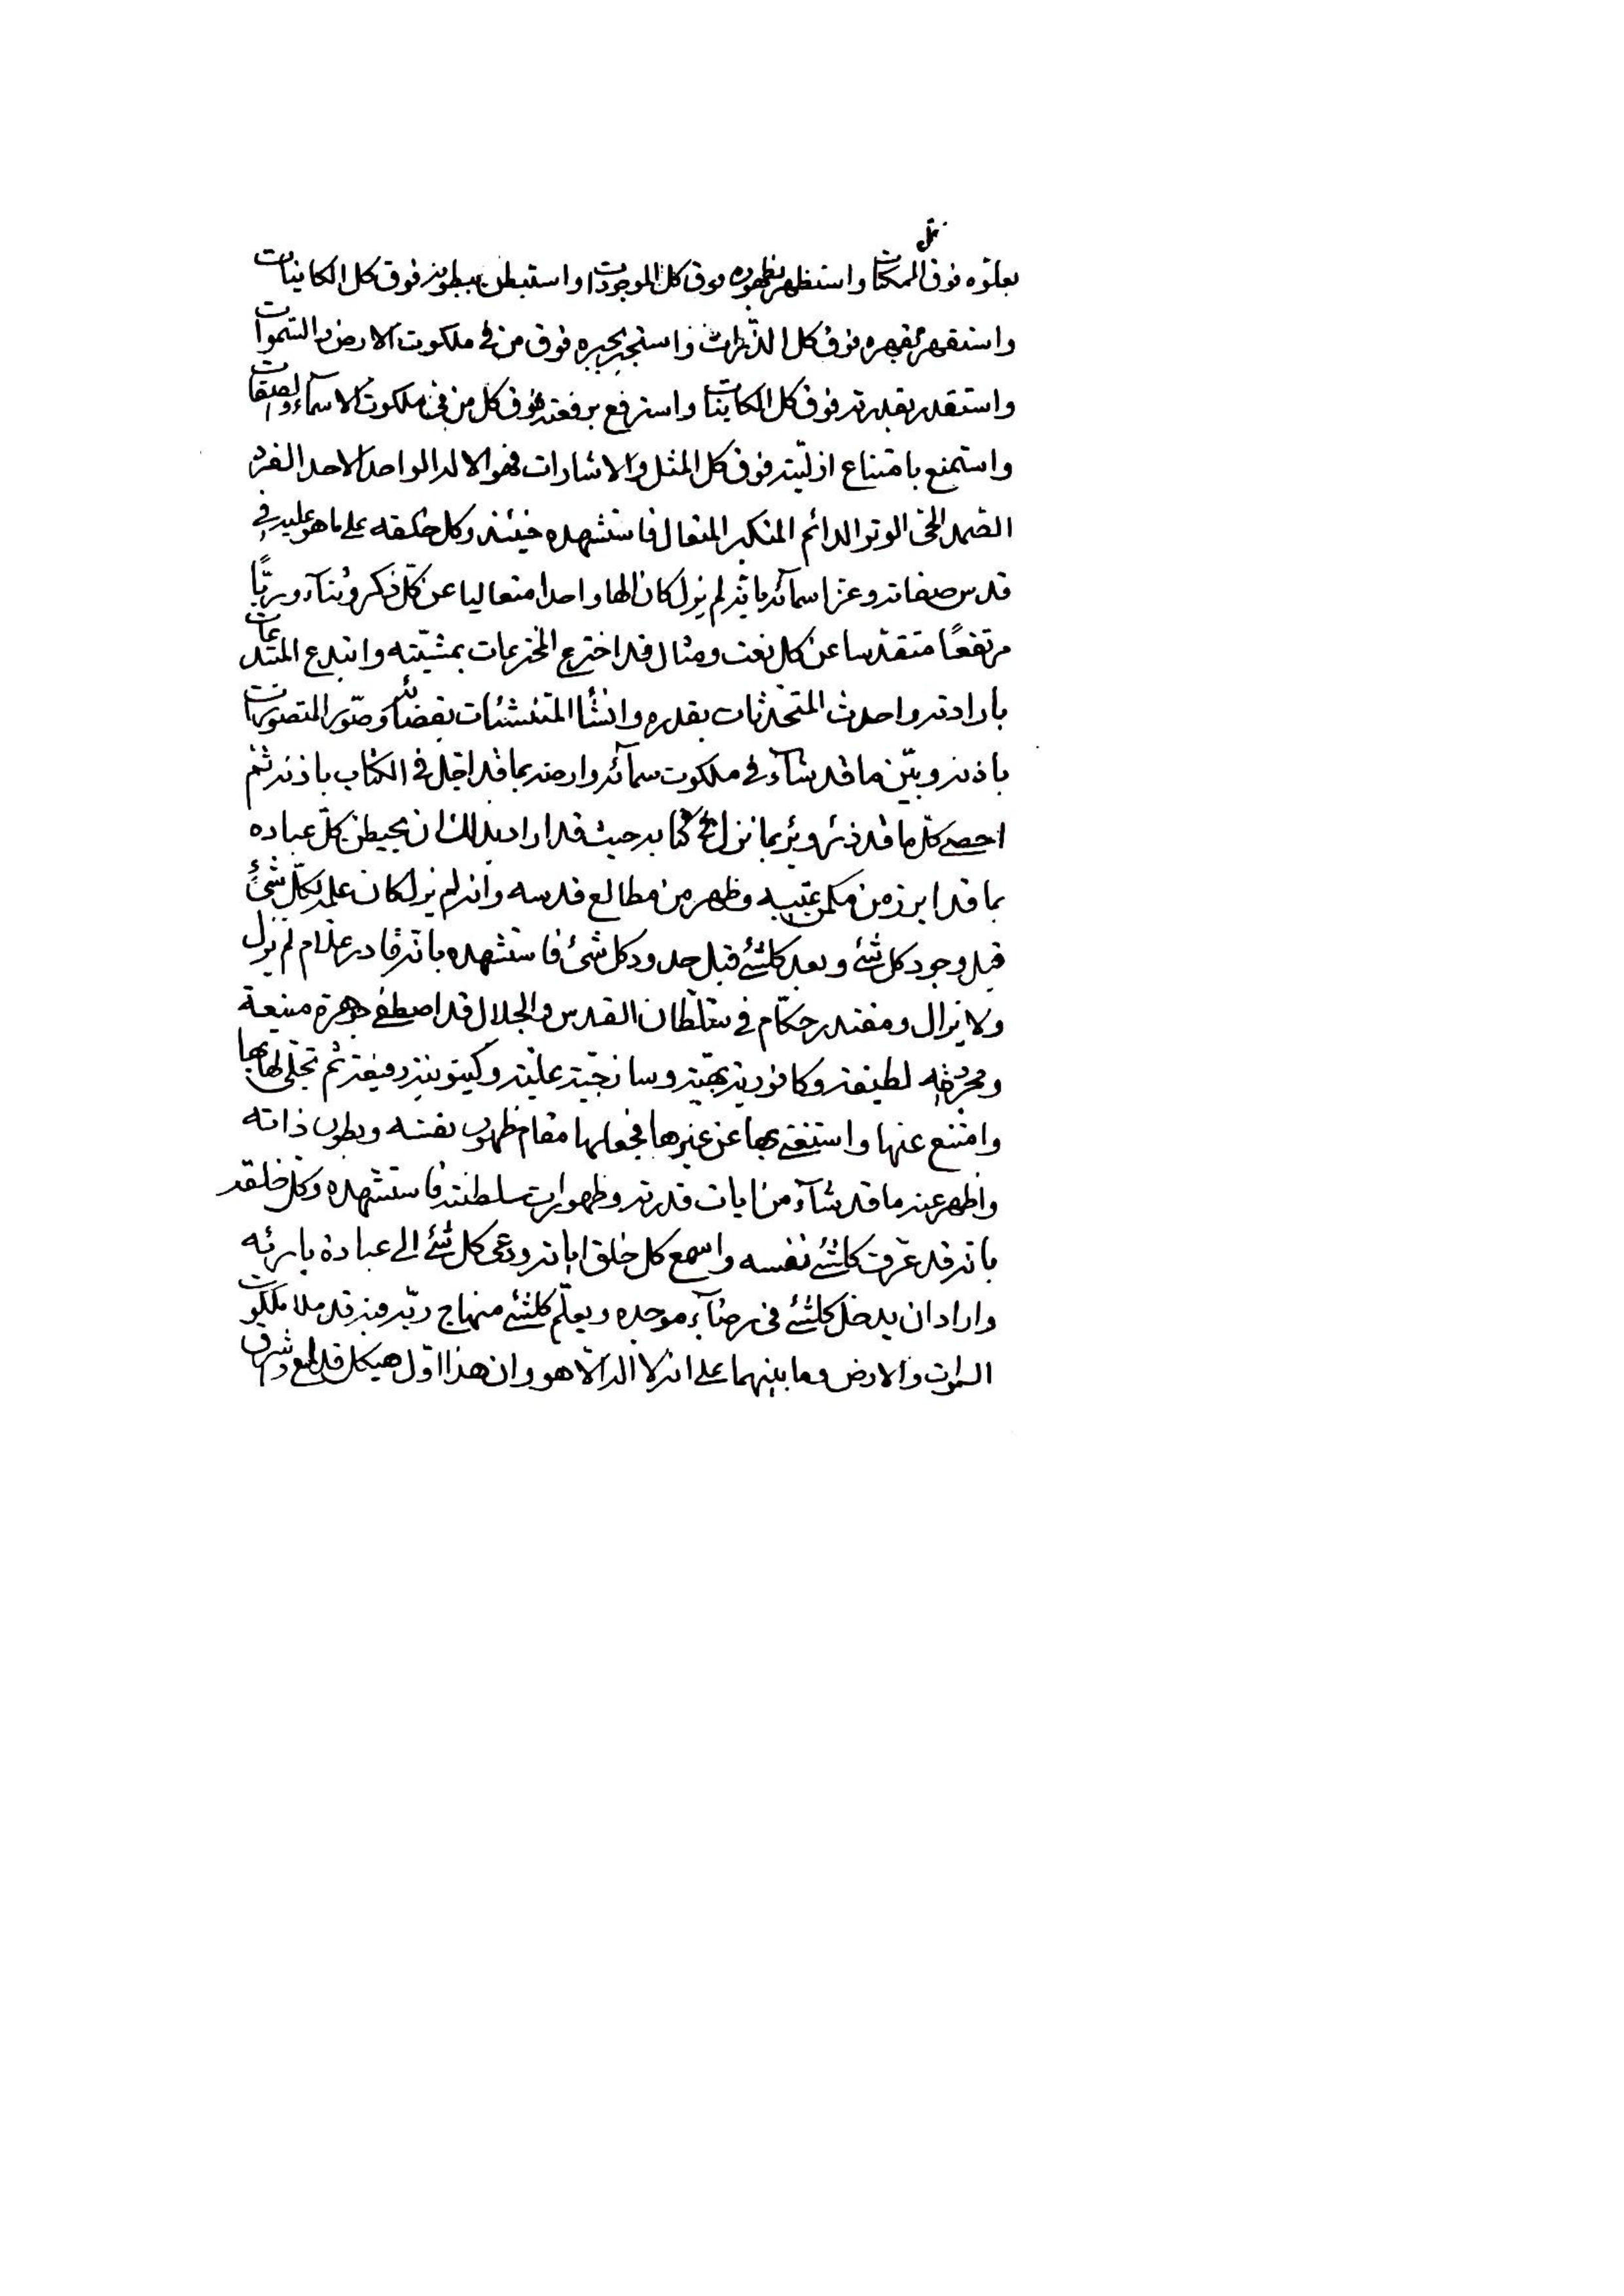 كل
بعلوه فوق الممكنات واستظهر بظهوره فوق كل الموجودات واستبطن ببطونه فوق كل الكاينات
واستقهر بقهره فوق كل الذرات واستجبر بجبره فوق من في ملكوت الارض والسموات
واستقدر بقدرته فوق كل الكاينات واسترفع برفعته فوق كل من في ملكوت الاسماء والصفات
واستمنع بامتناع ازليته فوق كل المثل والاشارات فهو الاله الواحد الاحد الفرد
الصمد الحي الوتر الدائم المتكبر المتعال فاستشهده حينئذ وكل خلقه على ما هو عليه في
قدس صفاته وعز اسمائه بانه لم يزل كان الها واحدا متعاليا عن كل ذكر وثناء وربًّا
مرتفعًا متقدسا عن كل نعت ومثال قد اخترع المخترعات بمشيّته وابتدع المبتدعات
بارادته واحدث المتحدثات بقدره وانشأ المتنشئات بقضائه وصوّر المتصورات
باذنه وبيّن ما قد شاء في ملكوت سمائه وارضه بما قد اجّل في الكتاب باذنه ثم
احصى كلّ ما قد ذرء وبرء بما نزل في كتابه حيث قد اراد بذلك ان يحيطن كلّ عباده
بما قد ابرز من مكمن غيبه وظهر من مطالع قدسه وانه لم يزل كان علمه بكلّ شئ
قبل وجود كل شئ وبعد كلشئ قبل حدود كل شئ فاستشهده بانه قادر علّام لم يزل
ولا يزال ومقتدر حكّام في سلطان القدس والجلال قد اصطفى جوهرة منيعة
ومجردة لطيفة وكافورية بهيّة وساذجيّة عليّة وكينونية رفيعة ثم تجلّى لها بها
وامتنع عنها واستغنى بها عن غيرها فجعلها مقام ظهور نفسه وبطون ذاته
واظهر عنه ما قد شاء من ايات قدرته وظهورات سلطنته فاستشهده وكل خلقه
بانه قد عرّف كلشئ نفسه واسمع كل خلق اياته ودعى كل شئ الى عبادة بارئه
واراد ان يدخل كلشئ في رضاء موجده ويعلّم كلشئ منهاج ربّه فبه قد ملا ملكوت
السموات والارض وما بينهما على انه لا اله الّا هو وان هذا اوّل هيكل قد لمع واشرق